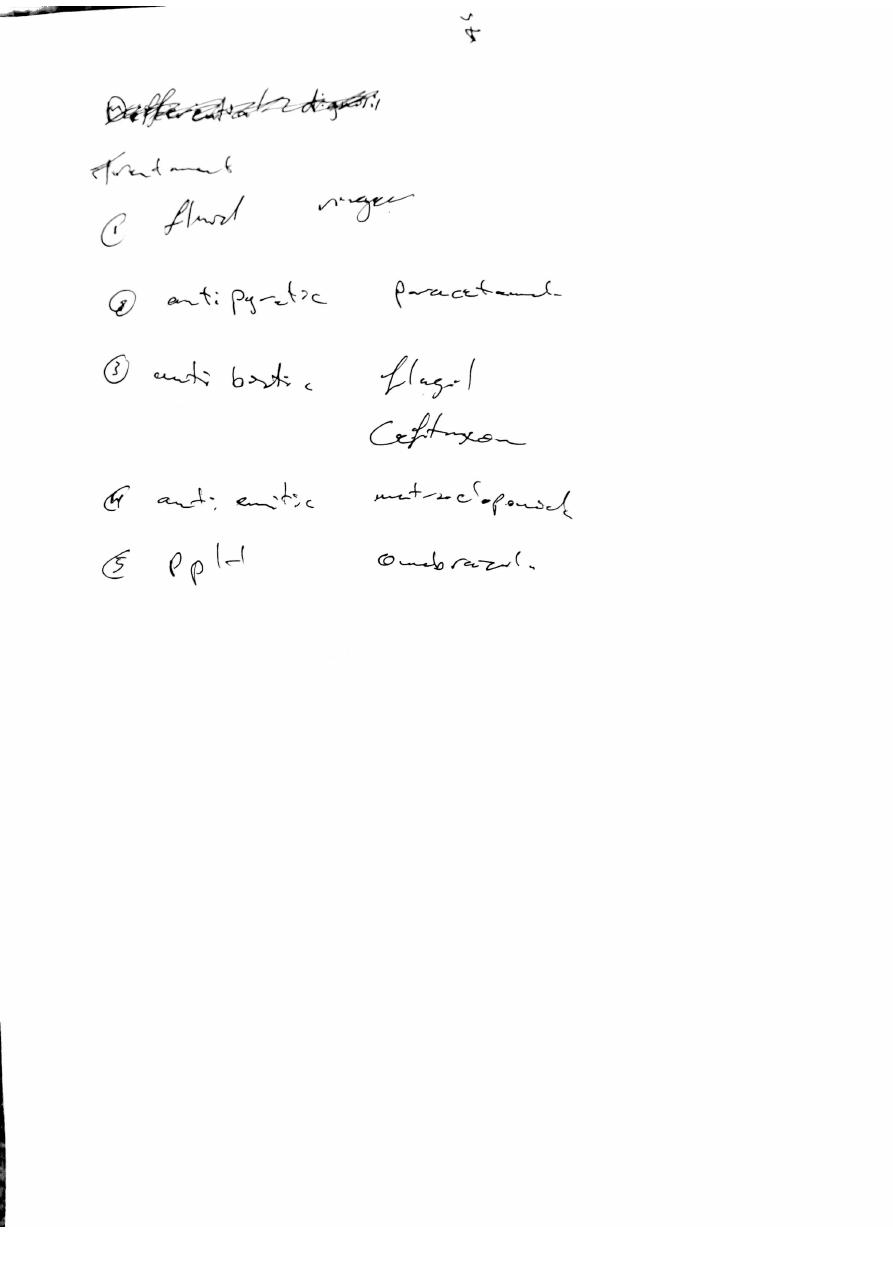 Differential diagnosis
Treatment
① fluid ringer
② anti pyretic paracetamol
③ anti biotic flagyl
Ceftriaxon
④ anti emitic metoclopramid
⑤ PPI omebrazol